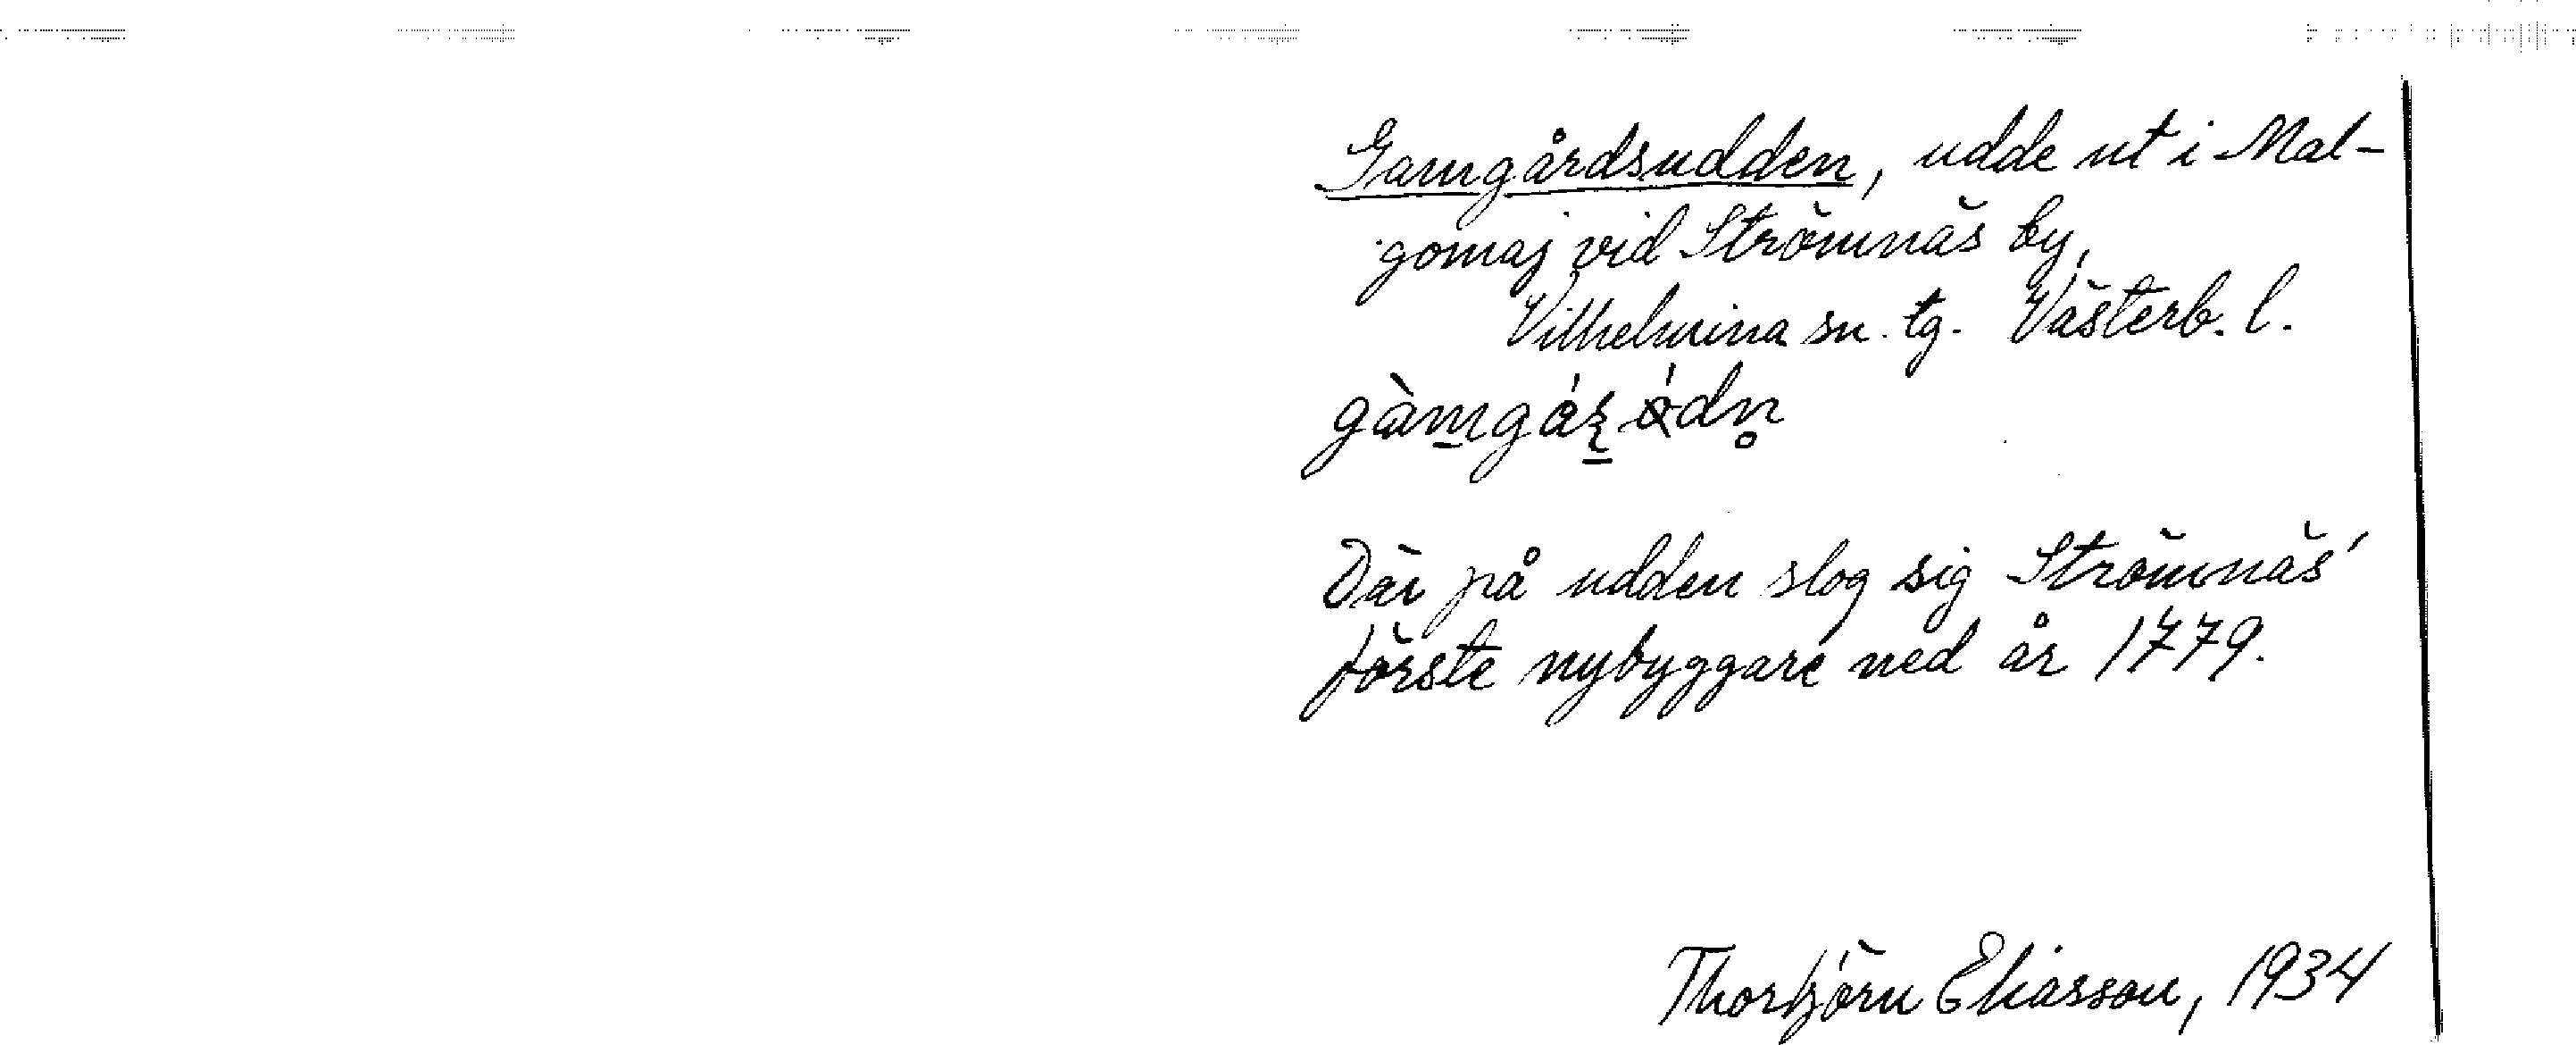 Gamgårdsudden, udde ut i Mal-
gomaj vid Strömnäs by,
Vilhelmina sn. tg. Västerb. l.
Där på udden slog sig Strömnäs'
förste nybyggare ned år 1779.
Thorbjörn Eliasson, 1934